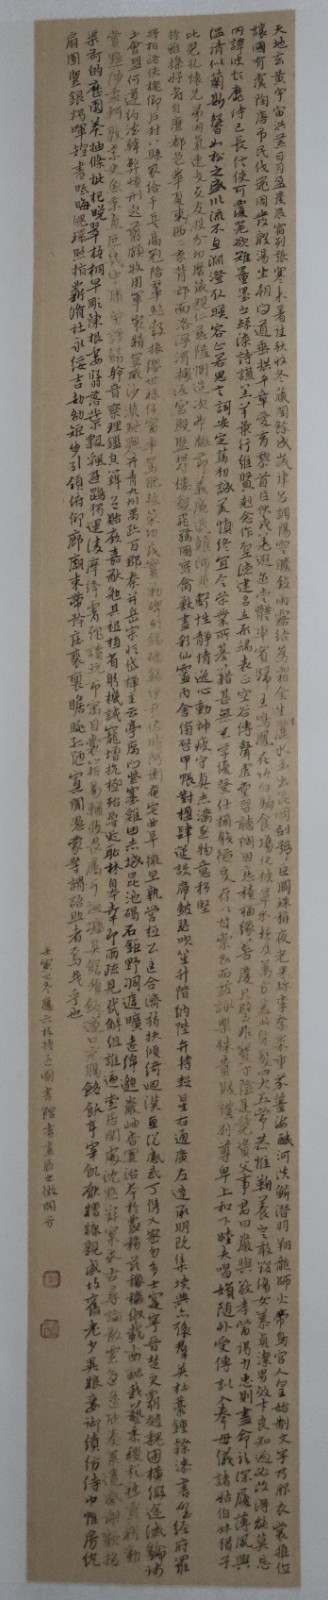 天地玄黃宇宙洪荒日月盈昃辰宿列張寒來暑往秋收冬藏閏餘成歲律呂調陽雲騰致雨露結為霜金生麗水玉出崑岡劍號巨闕珠稱夜光果珍李柰菜重芥薑海鹹河淡鱗潛羽翔龍師火帝鳥官人皇始制文字乃服衣裳推位
讓國有虞陶唐弔民伐罪周發殷湯坐朝問道垂拱平章愛育黎首臣伏戎羌遐邇壹體率賓歸王鳴鳳在竹白駒食場化被草木賴及萬方蓋此身髮四大五常恭惟鞠養豈敢毀傷女慕貞潔男效才良知過必改得能莫忘
罔談彼短靡恃己長信使可覆器欲難量墨悲絲染詩讚羔羊景行維賢剋念作聖德建名立形端表正空谷傳聲虛堂習聽禍因惡積福緣善慶尺璧非寶寸陰是競資父事君曰嚴與敬孝當竭力忠則盡命臨深履薄夙興
溫凊似蘭斯馨如松之盛川流不息淵澄取映容止若思言辭安定篤初誠美慎終宜令榮業所基籍甚無竟學優登仕攝職從政存以甘棠去而益詠樂殊貴賤禮別尊卑上和下睦夫唱婦隨外受傅訓入奉母儀諸姑伯叔猶子
比兒孔懷兄弟同氣連枝交友投分切磨箴規仁慈隱惻造次弗離節義廉退顛沛匪虧性靜情逸心動神疲守真志滿逐物意移堅
持雅操好爵自縻都邑華夏東西二京背邙面洛浮渭據涇宮殿盤鬱樓觀飛驚圖寫禽獸畫彩仙靈丙舍傍啟甲帳對楹肆筵設席鼓瑟吹笙升階納陛弁轉疑星右通廣內左達承明既集墳典亦聚群英杜稿鍾隸漆書壁經府羅
將相路俠槐卿戶封八縣家給千兵高冠陪輦驅轂振纓世祿侈富車駕肥輕策功茂實勒碑刻銘磻溪伊尹佐時阿衡奄宅曲阜微旦孰營桓公匡合濟弱扶傾綺迴漢惠說感武丁俊乂密勿多士寔寧晉楚更霸趙魏困橫假途滅虢踐
土會盟何遵約法韓弊煩刑起翦頗牧用軍最精宣威沙漠馳譽丹青九州禹跡百郡秦并嶽宗恆岱禪主云亭雁門紫塞雞田赤城昆池碣石鉅野洞庭曠遠綿邈巖岫杳冥治本於農務茲稼穡俶載南畝我藝黍稷稅熟貢新勸
賞黜陟孟軻敦素史魚秉直庶幾中庸勞謙謹敕聆音察理鑑貌辨色貽厥嘉猷勉其祗植省躬譏誡寵增抗極殆辱近恥林皋幸即兩疏見機解組誰逼索居閒處沉默寂寥求古尋論散慮逍遙欣奏累遣慼謝歡招
渠荷的歷園莽抽條枇杷晚翠梧桐早凋陳根委翳落葉飄颻遊鵾獨運凌摩絳霄耽讀翫市寓目囊箱易輶攸畏屬耳垣牆具膳餐飯適口充腸飽飫烹宰飢厭糟糠親戚故舊老少異糧妾御績紡侍巾帷房紈
扇圓潔銀燭煒晦魄環照指薪修祜永綏吉劭矩步引領俯仰廊廟束帶矜莊徘徊瞻眺孤陋寡聞愚蒙等誚謂語助者焉哉乎也
壬寅之冬